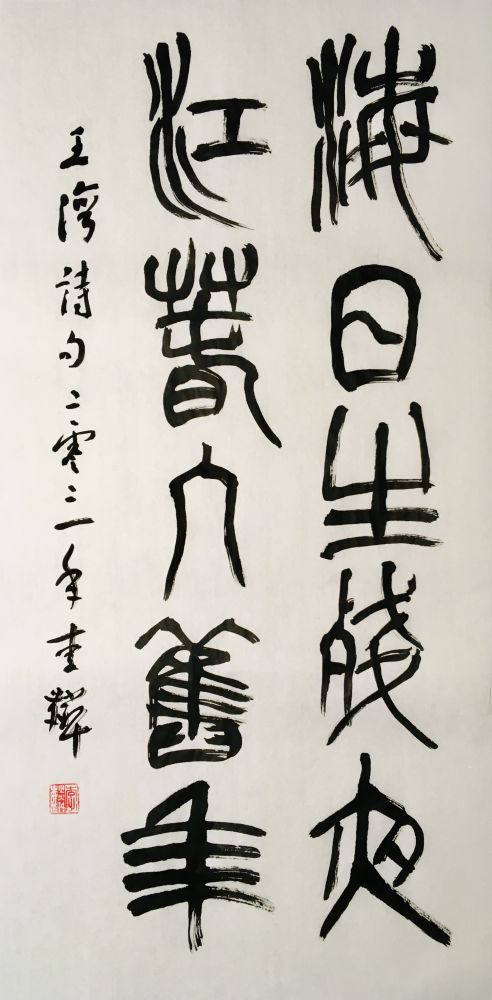 海日生殘夜
江春入舊年
王灣詩句二零二一年李